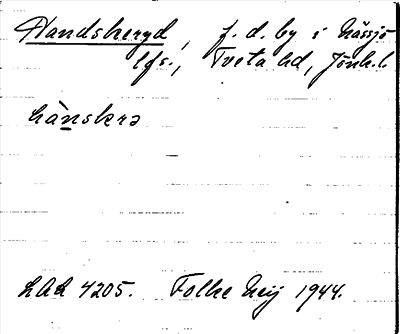 Handskeryd, f.d. by i Nässjö
lfs., Tveta hd, Jönk.l.
hànskrə
LAL 4205. Folke Neij 1944.